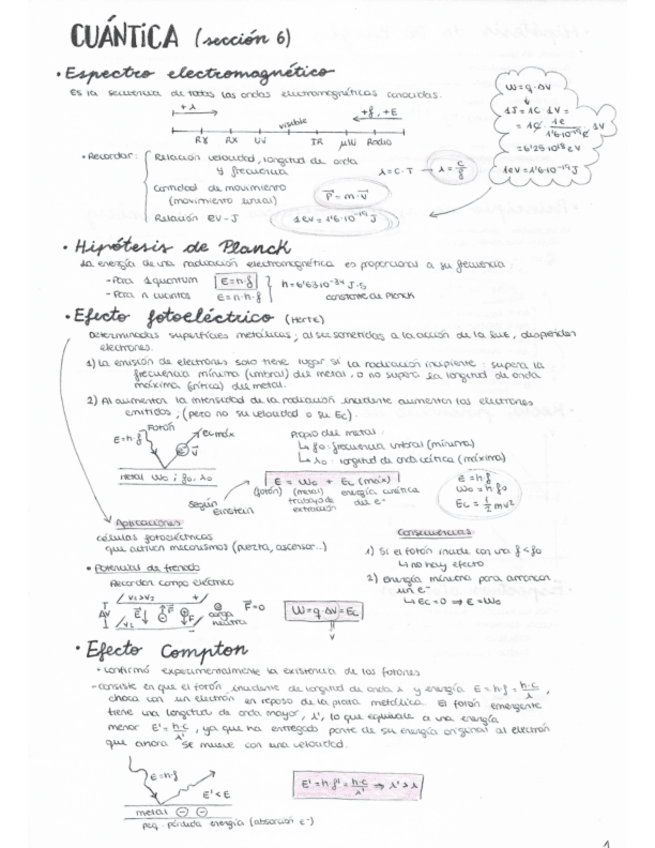 CUÁNTICA (sección 6)
• Espectro electromagnético
Es la secuencia de todas las ondas electromagnéticas conocidas.
+λ
+f, +E
visible
RX UV IR μW Radio
• Recordar:
Relación velocidad, longitud de onda
y frecuencia
λ = C·T → λ = c/f
Cantidad de movimiento
(movimiento lineal)
P = m·v
Relación eV - J
1eV = 1'6·10⁻¹⁹ J
W = q·ΔV
1J = 1C·1V =
= 1C · 1e / 1'6·10⁻¹⁹ C · 1V
= 6'25·10¹⁸ eV
1eV = 1'6·10⁻¹⁹ J
• Hipótesis de Planck
La energía de una radiación electromagnética es proporcional a su frecuencia:
- Para 1 quantum E = h·f
- Para n cuantos E = n·h·f
h = 6'63·10⁻³⁴ J·s
constante de Planck
• Efecto fotoeléctrico (Hertz)
Determinadas superficies metálicas, al ser sometidas a la acción de la luz, desprenden
electrones.
1) La emisión de electrones solo tiene lugar si la radiación incidente: supera la
frecuencia mínima (umbral) del metal, o no supera la longitud de onda
máxima (crítica) del metal.
2) Al aumentar la intensidad de la radiación incidente aumentan los electrones
emitidos, (pero no su velocidad o su Ec).
Fotón
E = h·f
Ec máx
v
metal W₀; f₀, λ₀
Propio del metal:
↳ f₀: frecuencia umbral (mínima)
↳ λ₀: longitud de onda crítica (máxima)
E = W₀ + Ec (máx)
(fotón) (metal) energía cinética
trabajo de del e⁻
extracción
según
Einstein
E = h·f
W₀ = h·f₀
Ec = ½ mv²
Aplicaciones
células fotoeléctricas
que activen mecanismos (puerta, ascensor...)
• Potencial de frenado
Recordar campo eléctrico
V₁>V₂ +
ΔV
E F F
V₂ -
carga
neutra
F = 0
W = q·ΔV = Ec
Consecuencias
1) Si el fotón incide con una f < f₀
↳ no hay efecto
2) Energía mínima para arrancar
un e⁻
↳ Ec = 0 ⇒ E = W₀
• Efecto Compton
• Confirmó experimentalmente la existencia de los fotones
- consiste en que el fotón incidente de longitud de onda λ y energía E = h·f = h·c/λ,
choca con un electrón en reposo de la placa metálica. El fotón emergente
tiene una longitud de onda mayor, λ', lo que equivale a una energía
menor E' = h·c/λ', ya que ha entregado parte de su energía original al electrón
que ahora se mueve con una velocidad.
E = h·f
E' < E
metal
peq. pérdida energía (absorción e⁻)
E' = h·f' = h·c/λ' ⇒ λ' > λ
1